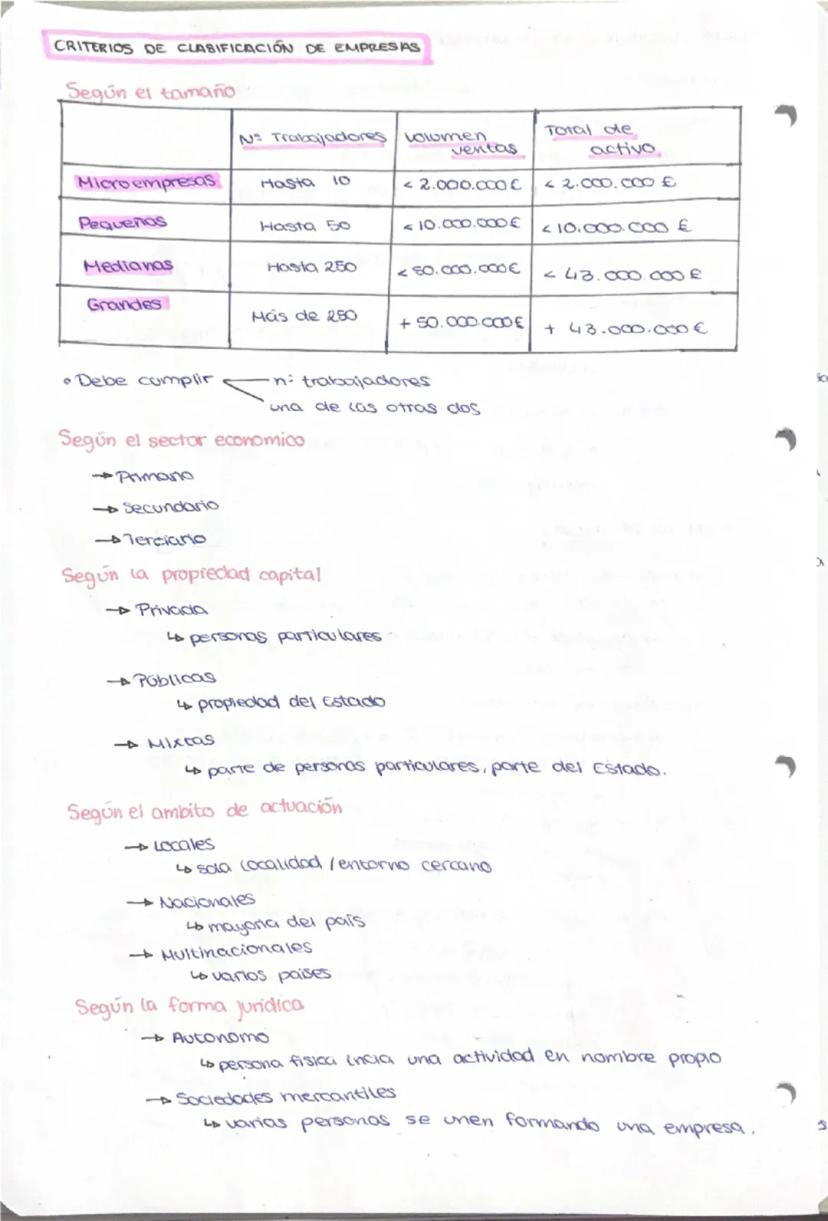 CRITERIOS DE CLASIFICACIÓN DE EMPRESAS
Según el tamaño
Nº Trabajadores Volumen ventas Total de activo
Microempresas Hasta 10 < 2.000.000 € < 2.000.000 €
Pequeñas Hasta 50 < 10.000.000 € < 10.000.000 €
Medianas Hasta 250 < 50.000.000 € < 43.000.000 €
Grandes Más de 250 + 50.000.000 € + 43.000.000 €
• Debe cumplir n: trabajadores
una de las otras dos
Según el sector economico
→ Primario
→ Secundario
→ Terciario
Según la propiedad capital
→ Privada
↳ personas particulares
→ Públicas
↳ propiedad del Estado
→ Mixtas
↳ parte de personas particulares, parte del Estado.
Según el ambito de actuación
→ Locales
↳ sola localidad / entorno cercano
→ Nacionales
↳ mayoria del país
→ Multinacionales
↳ varios paises
Según la forma jurídica
→ Autonomo
↳ persona fisica incia una actividad en nombre propio
→ Sociedades mercantiles
↳ varias personas se unen formando una empresa.